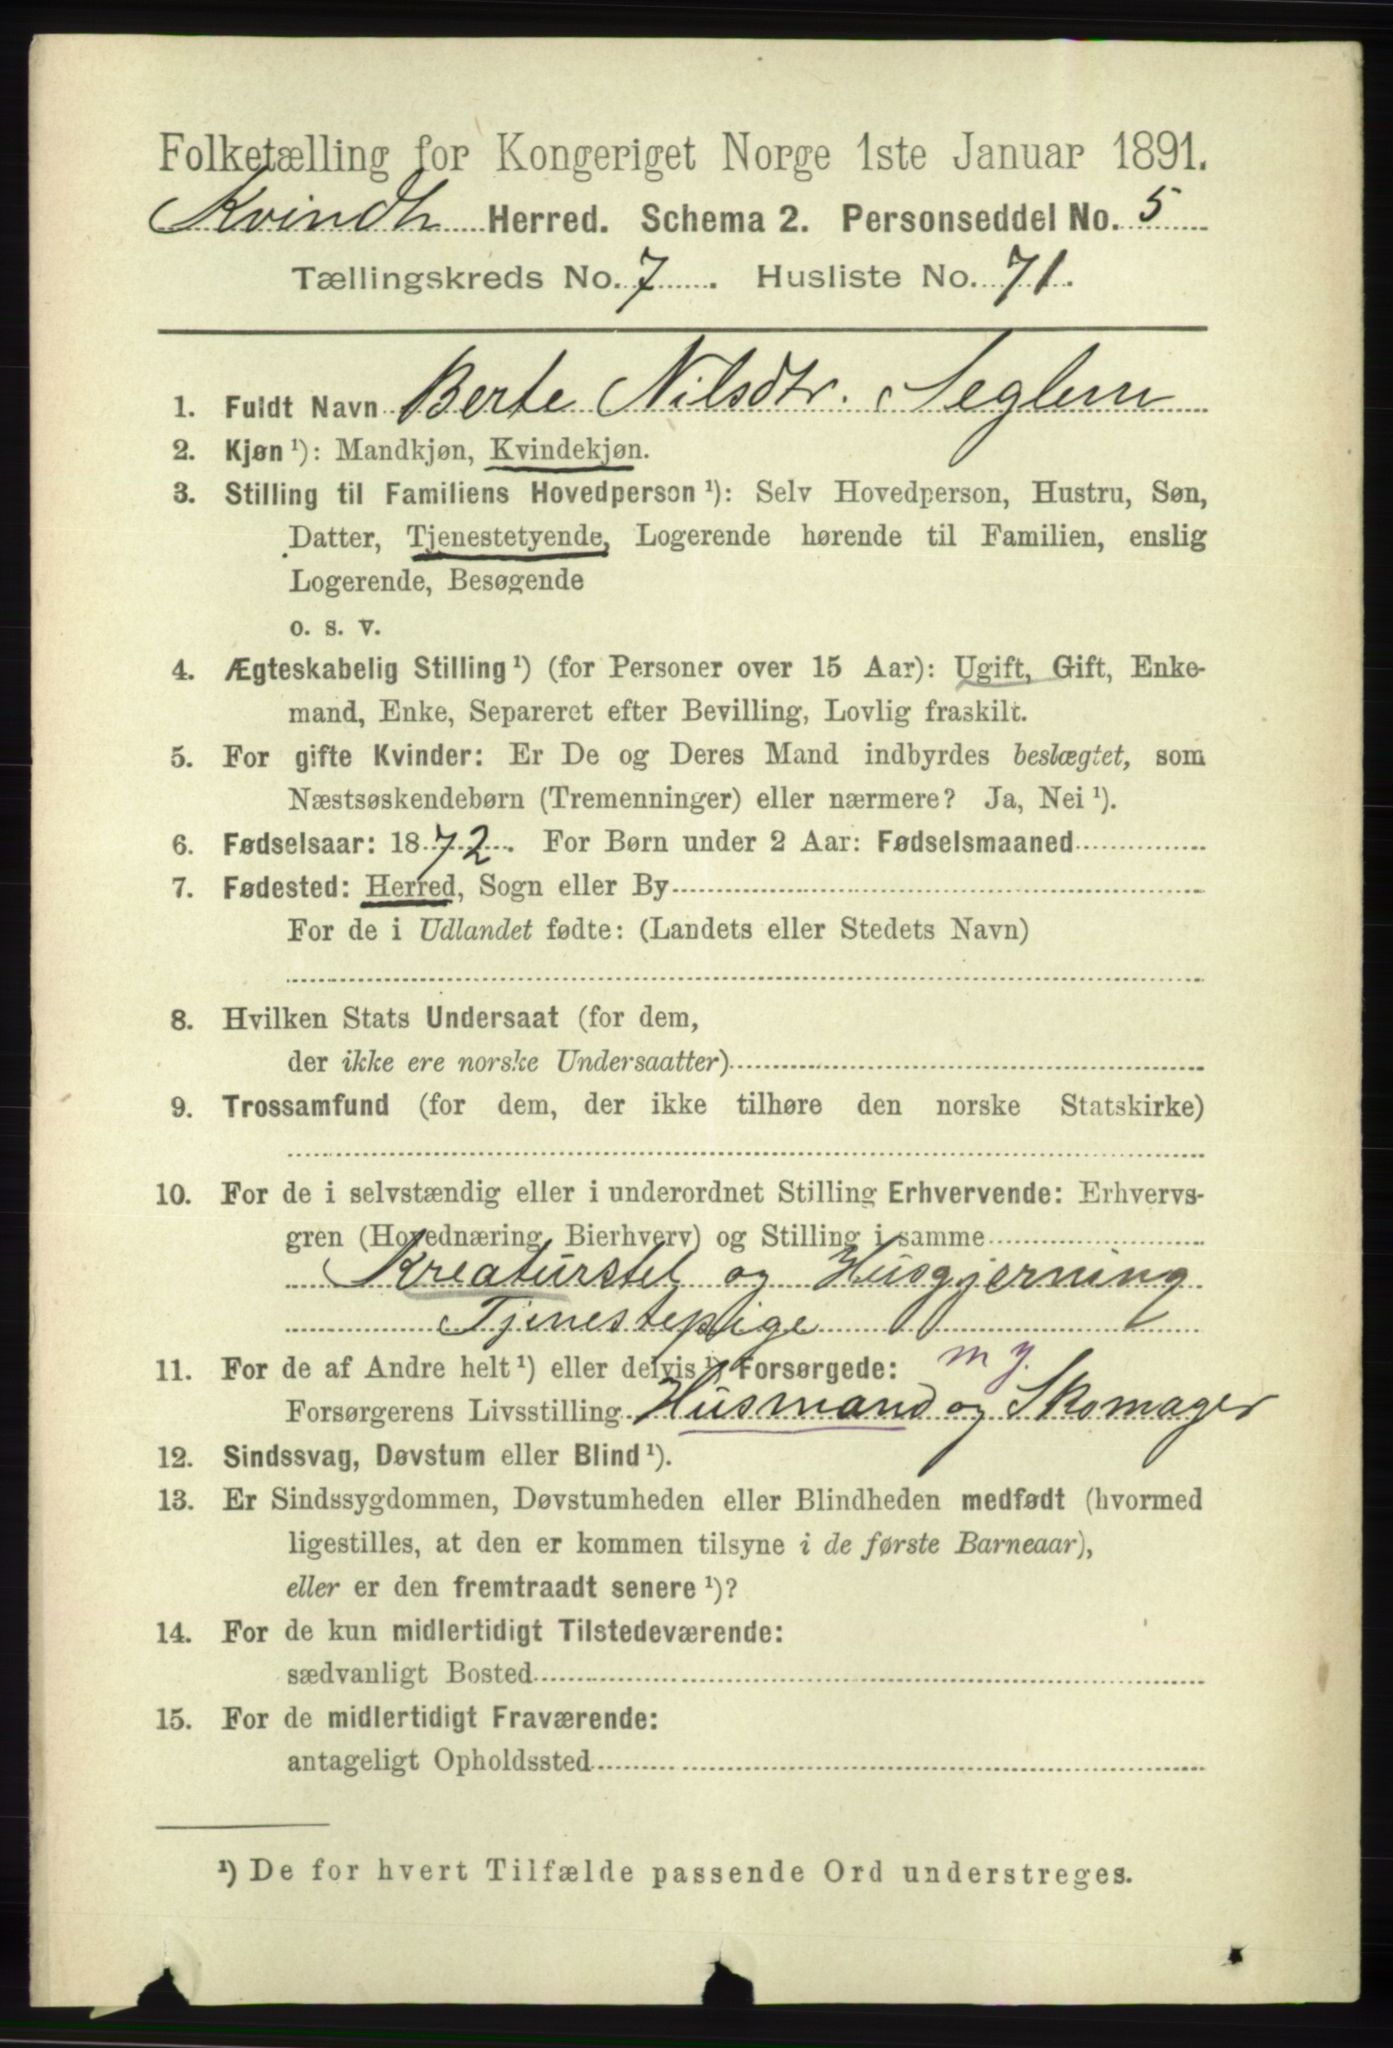 Folketælling for Kongeriget Norge 1ste Januar 1891.
Kvindh Herred. Schema 2. Personseddel No. 5
Tællingskreds No. 7. Husliste No. 71.
1. Fuldt Navn Berte Nilsdtr. Seglem
2. Kjøn ¹): Mandkjøn, Kvindekjøn.
3. Stilling til Familiens Hovedperson ¹): Selv Hovedperson, Hustru, Søn,
Datter, Tjenestetyende, Logerende hørende til Familien, enslig
Logerende, Besøgende
o. s. v.
4. Ægteskabelig Stilling ¹) (for Personer over 15 Aar): Ugift, Gift, Enke-
mand, Enke, Separeret efter Bevilling, Lovlig fraskilt.
5. For gifte Kvinder: Er De og Deres Mand indbyrdes beslægtet, som
Næstsøskendebørn (Tremenninger) eller nærmere? Ja, Nei ¹).
6. Fødselsaar: 1872. For Børn under 2 Aar: Fødselsmaaned
7. Fødested: Herred, Sogn eller By
For de i Udlandet fødte: (Landets eller Stedets Navn)
8. Hvilken Stats Undersaat (for dem,
der ikke ere norske Undersaatter)
9. Trossamfund (for dem, der ikke tilhøre den norske Statskirke)
10. For de i selvstændig eller i underordnet Stilling Erhvervende: Erhvervs-
gren (Hovednæring, Bierhverv) og Stilling i samme
Kreaturstel og Husgjerning
Tjenestepige
11. For de af Andre helt ¹) eller delvis ¹) Forsørgede: m y.
Forsørgerens Livsstilling Husmand og Skomager
12. Sindssvag, Døvstum eller Blind ¹).
13. Er Sindssygdommen, Døvstumheden eller Blindheden medfødt (hvormed
ligestilles, at den er kommen tilsyne i de første Barneaar),
eller er den fremtraadt senere ¹)?
14. For de kun midlertidigt Tilstedeværende:
sædvanligt Bosted
15. For de midlertidigt Fraværende:
antageligt Opholdssted
¹) De for hvert Tilfælde passende Ord understreges.